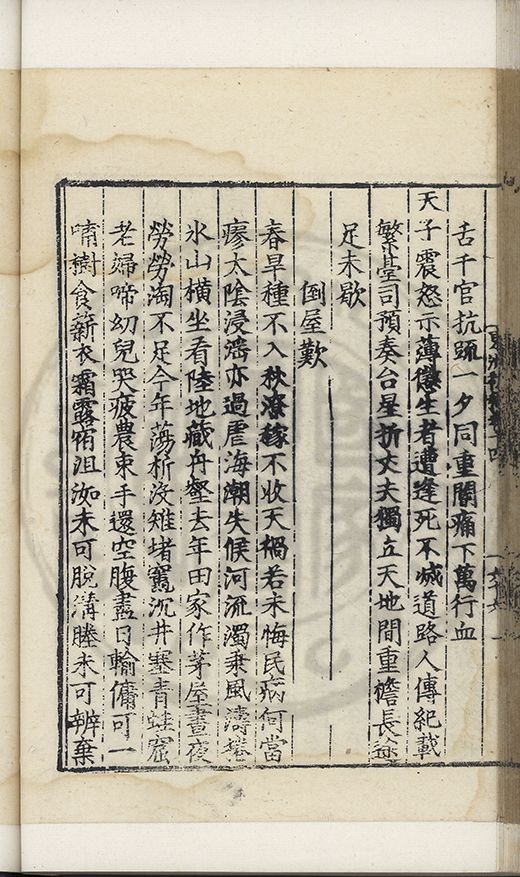 舌千官抗疏一夕同重關痛下萬行血
天子震怒示薄懲生者遭逢死不滅道路人傳紀載
繁臺司預奏台星折丈夫獨立天地間重擔長途
足未歇
倒屋歎
春旱種不入秋潦稼不收天禍若未悔民病何當
瘳太陰浸滛亦過虐海潮失候河流濁乘風濤捲
氷山橫坐看陸地藏舟壑去年田家作茅屋晝夜
勞勞淘不足今年蕩析沒雉堵竃沉井塞青蛙窟
老婦啼幼兒哭疲農束手還空腹盡日輸傭可一
啃樹食薪衣霜露宿沮洳未可脫溝塍未可辨棄